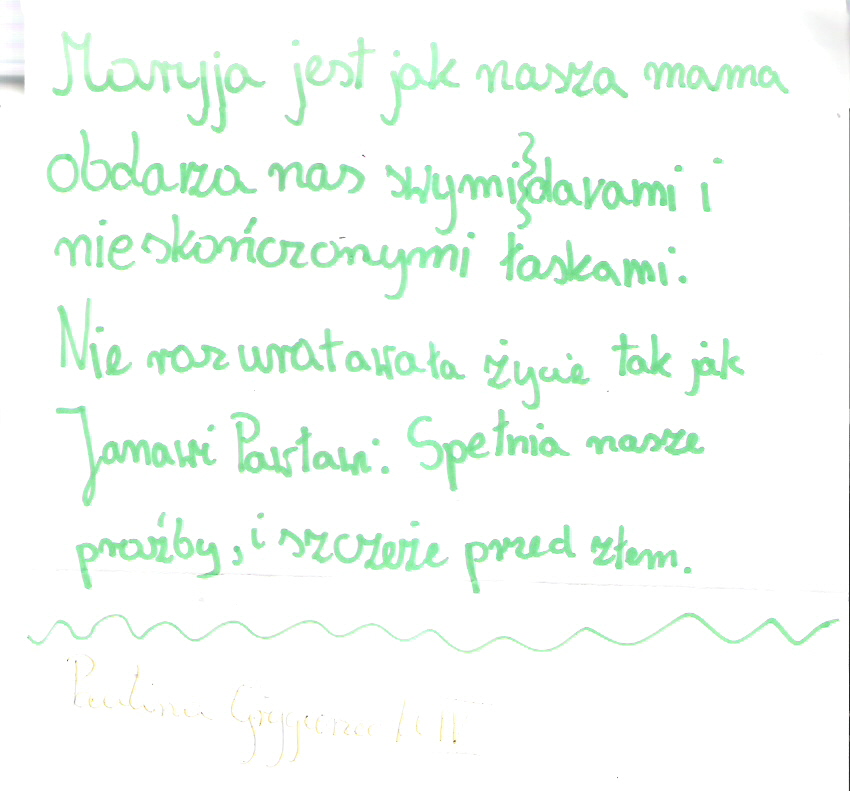 Maryja jest jak nasza mama
obdarza nas swymi darami i
nieskończonymi łaskami.
Nie raz uratawała życie tak jak
Janawi Pawławi. Spełnia nasze
praźby, i szczeże przed złem.
Paulina